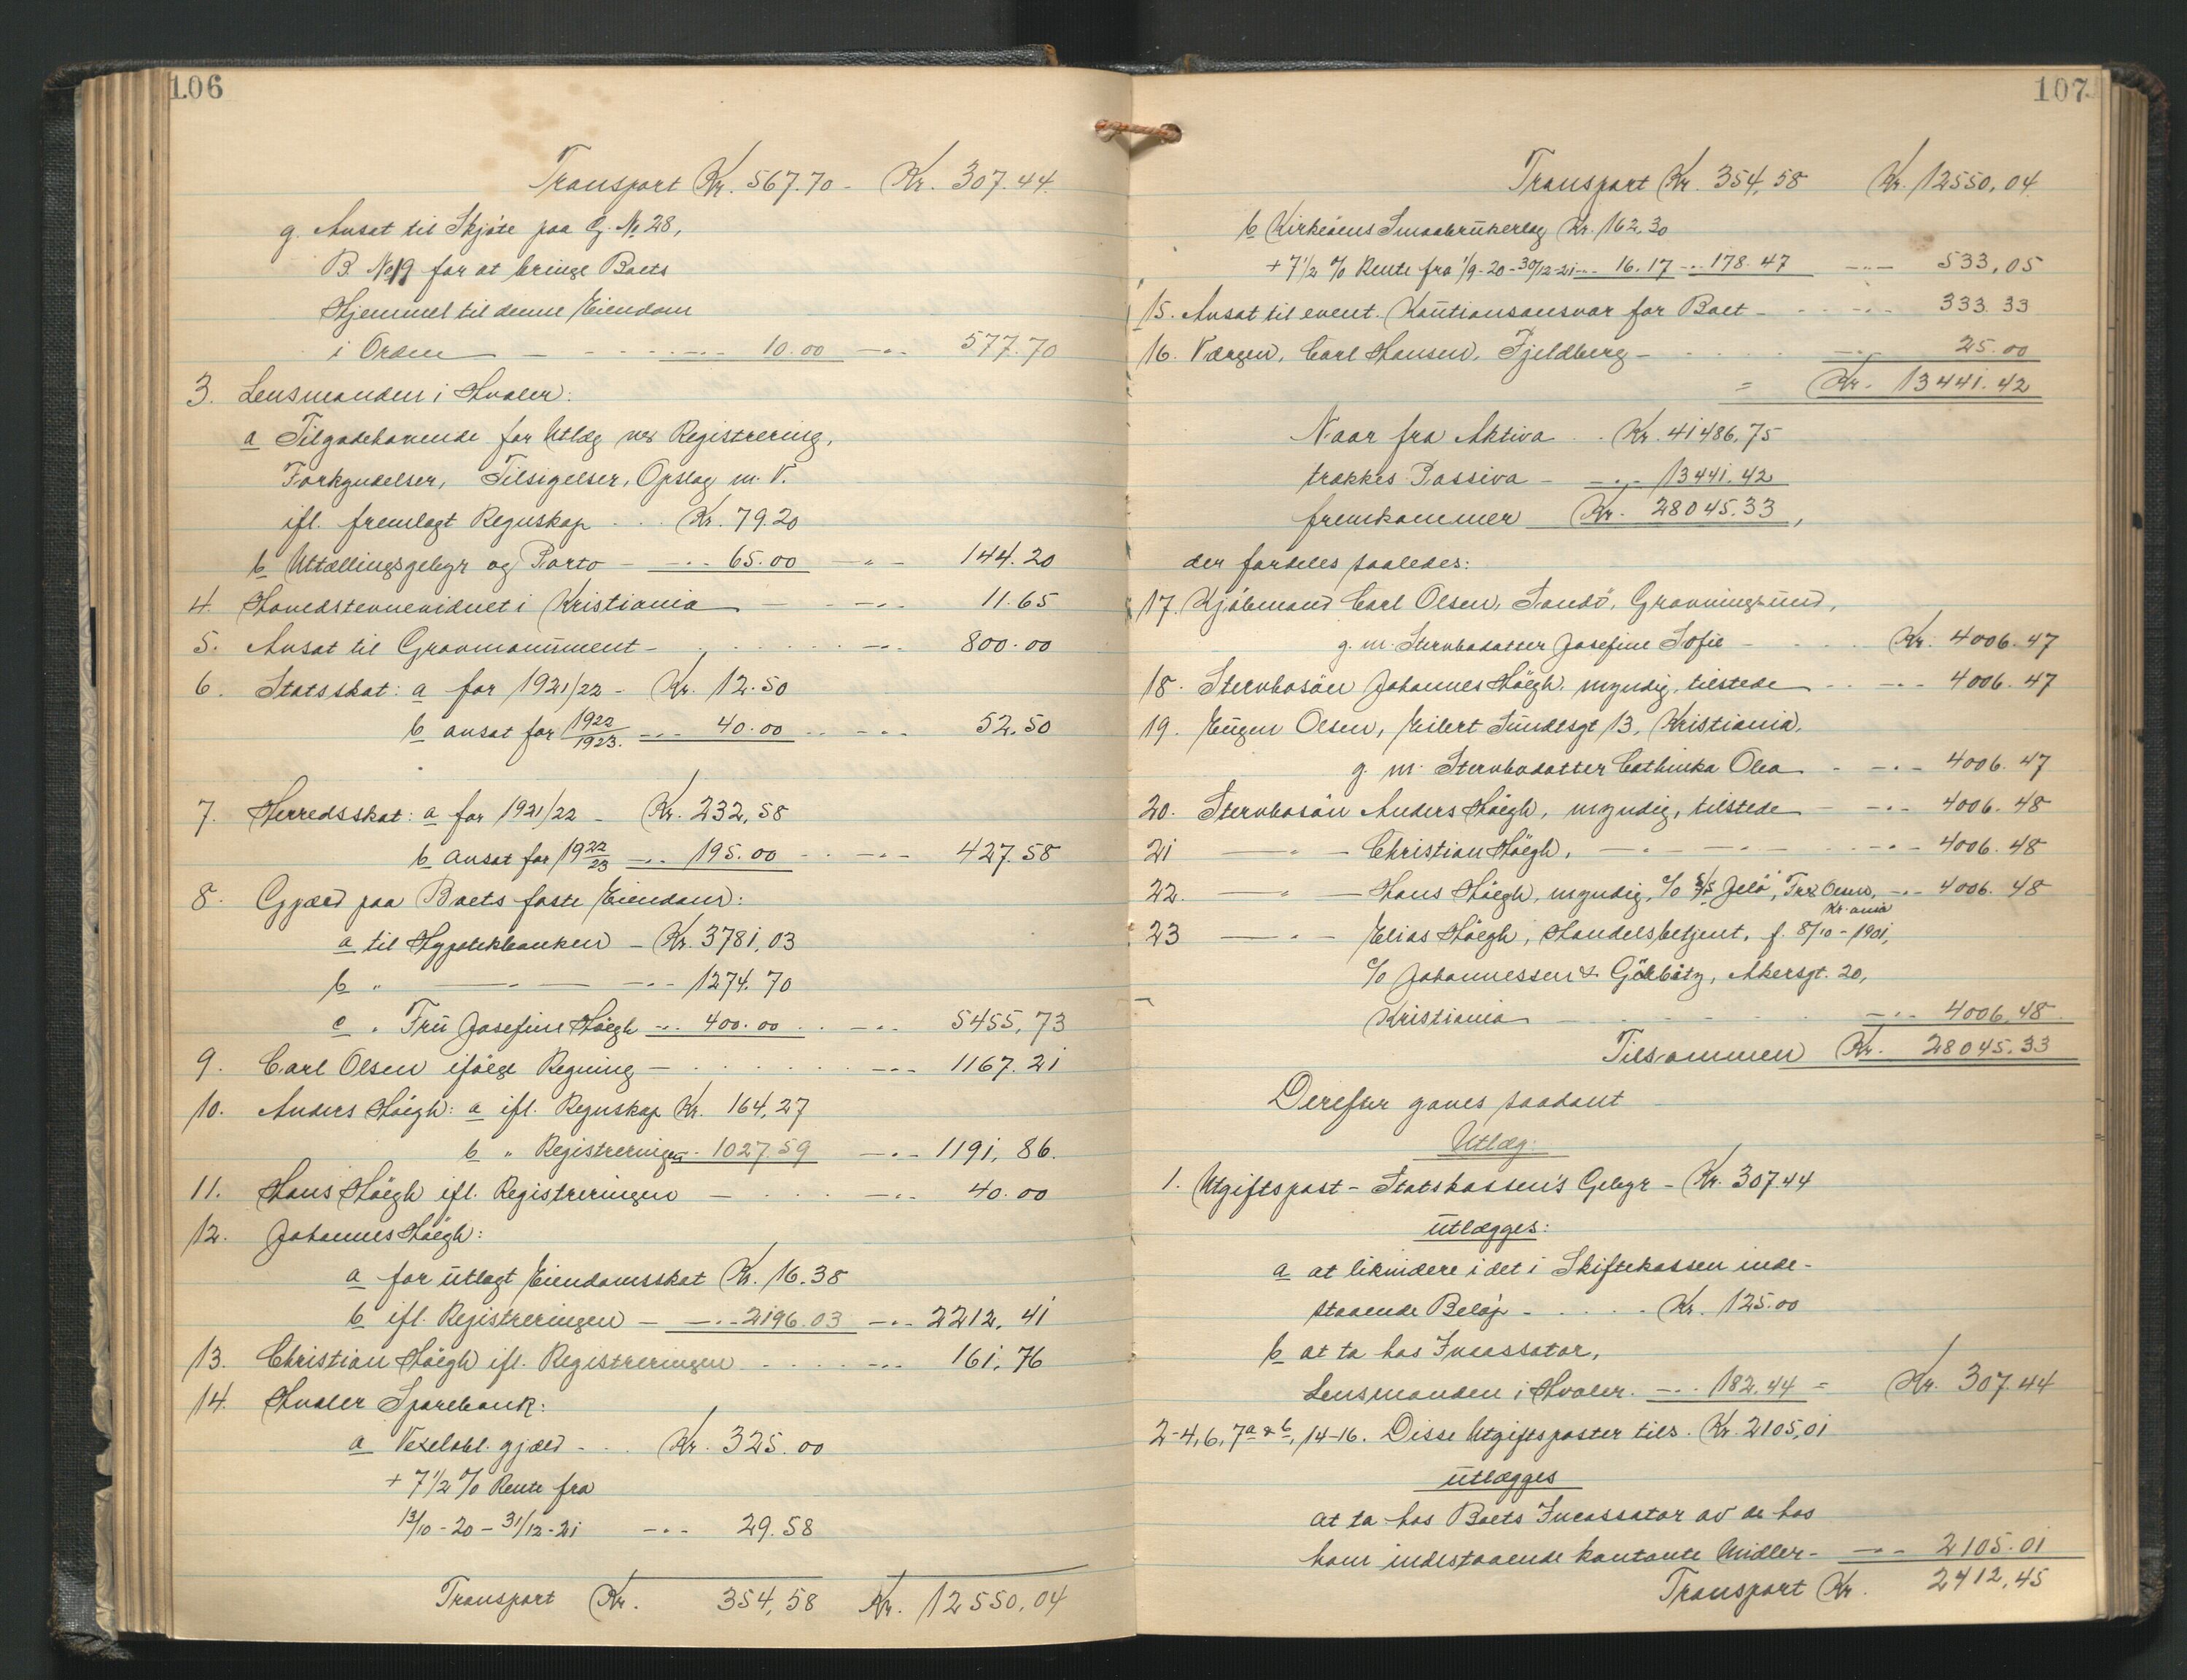 106
Transport Kr. 567.70 - Kr. 307.44.
g. Ansat til Skjöte paa G. No 28,
B No 19 for at bringe Boets
Hjemmel til denne Eiendom
i Orden - - - - -"- 10.00 -"- 577.70
3. Lensmanden i Hvaler:
a Tilgodehavende for Utlæg ved Registrering,
Forkyndelser, Tilsigelser, Opslag m. V.
ifl. fremlagt Regnskap . . Kr. 79.20
b Uttællingsgebyr og Porto - -"- 65.00 -"- 144.20
4. Hovedstevnevidnet i Kristiania - - -"- 11.65
5. Ansat til Gravmonument - . . . . . -"- 800.00
6. Statsskat: a for 1921/22 - Kr. 12.50
b ansat for 1922/1923. -"- 40.00 . . -"- 52.50
7. Herredsskat: a for 1921/22 - Kr. 232,58
b ansat for 1922/23 -"- 195.00 . . -"- 427.58
8. Gjæld paa Boets faste Eiendom:
a til Hypotekbanken - Kr. 3781,03
b " -"- -"- 1274.70
c " Fru Josefine Höegh -"- 400.00 . . -"- 5455,73
9. Carl Olsen ifölge Regning - . . . . . -"- 1167.21
10. Anders Höegh: a ifl. Regnskap Kr. 164,27
b " Registreringen - 1027.59 -"- 1191,86.
11. Hans Höegh ifl. Registreringen - . . . -"- 40.00
12. Johannes Höegh:
a for utlagt Eiendomsskat Kr. 16.38
b ifl. Registreringen - -"- 2196.03 -"- 2212,41
13. Christian Höegh ifl. Registreringen . . . . -"- 161,76
14. Hvaler Sparebank:
a Vexelobl. gjæld - . . Kr. 325.00
+ 7 1/2 % Rente fra
13/10-20 - 31/12-21 -"- 29.58
Transport Kr. 354,58 Kr. 12550,04
107
Transport Kr. 354,58 Kr. 12550,04
b Kirköens Smaabrukerlag Kr. 162,30
+ 7 1/2 % Rente fra 1/9-20-30/12-21 -"- 16.17 -"- 178.47 -"- 533,05
15. Ansat til event. Kautionsansvar for Boet - . . -"- 333.33
16. Værgen, Carl Hansen, Fjeldberg - . . . . -"- 25.00
= Kr. 13441.42
Naar fra Aktiva . . Kr. 41486,75
trækkes Passiva - -"- 13441.42
fremkommer Kr. 28045.33,
der fordeles saaledes:
17. Kjöbmand Carl Olsen, Sandö, Gravningsund,
g. m. Stervbodatter Josefine Sofie - . . Kr. 4006.47
18. Stervbosön Johannes Höegh, myndig, tilstede . . -"- 4006.47
19. Eugen Olsen, Eilert Sundtsgt 13, Kristiania,
g. m. Stervbodatter Cathinka Olea - -"- 4006.47
20. Stervbosön Anders Höegh, myndig, tilstede - -"- 4006.48
21 -"- Christian Höegh, -"- -"- . . -"- 4006.48
22. -"- Hans Höegh, myndig, c/o S/S Jelö, Olsen, -"- 4006.48
Kr.ania
23 -"- Elias Höegh, Handelsbetjent, f. 8/10-1901,
c/o Johannessen & Akersgt. 20,
Kristiania - - . . . . -"- 4006,48.
Tilsammen Kr. 28045.33
Derefter gaves saadant
Utlæg:
1. Utgiftspost - Statskassen's Gebyr - Kr. 307.44
utlægges:
a at likvidere i det i Skiftekassen inde-
staaende Belöp - . . . . Kr. 125.00
b at ta hos Incassator,
Lensmanden i Hvaler. -"- 182.44 = Kr. 307.44
2-4, 6, 7a & b, 14-16. Disse Utgiftsposter tils. Kr. 2105,01
utlægges
at ta hos Boets Incassator av de hos
ham indestaaende kontante Midler - -"- 2105.01
Transport Kr. 2412,45